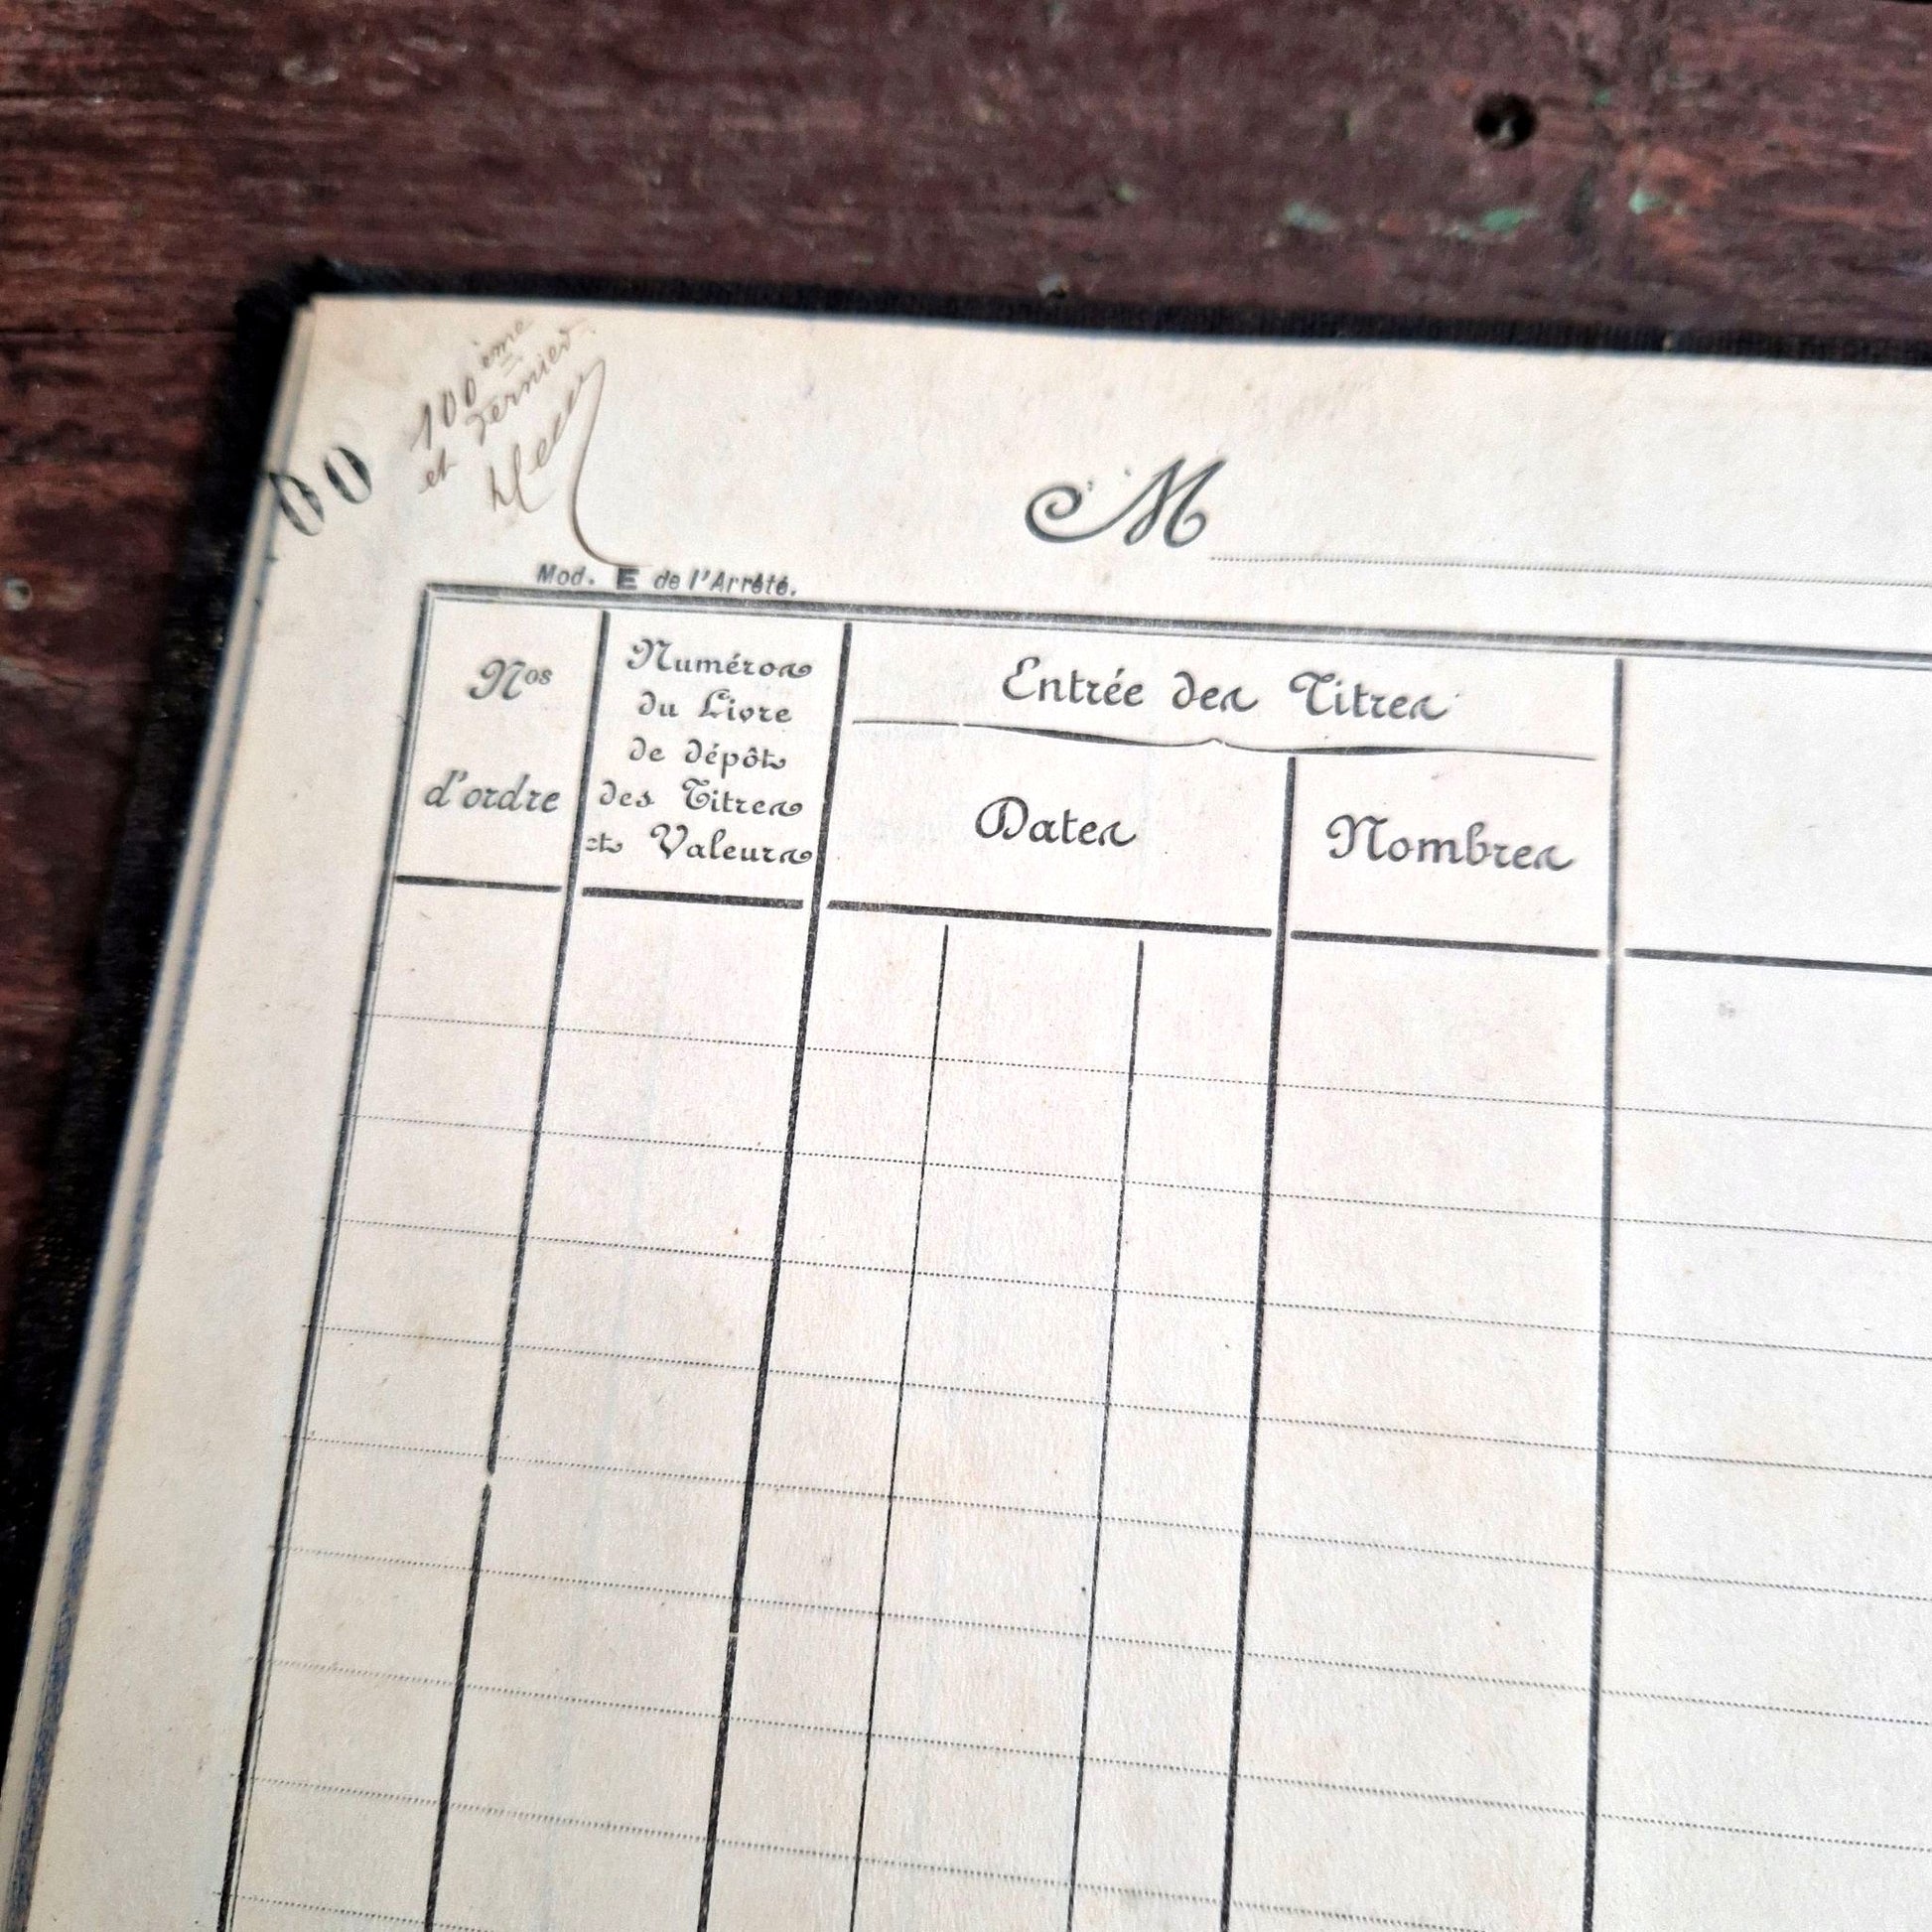 100ème
et dernier
00
M
Mod. E de l'Arrêté.
Nos
d'ordre
Numéros
du Livre
de dépôt
des Titres
et Valeurs
Entrée des Titres
Dates
Nombres